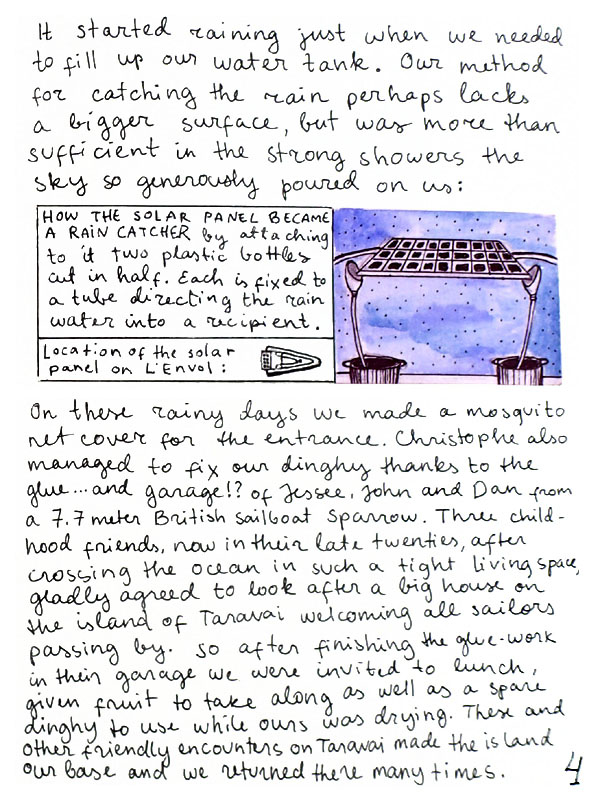 It started raining just when we needed
to fill up our water tank. Our method
for catching the rain perhaps lacks
a bigger surface, but was more than
sufficient in the strong showers the
sky so generously poured on us:
HOW THE SOLAR PANEL BECAME
A RAIN CATCHER by attaching
to it two plastic bottles
cut in half. Each is fixed to
a tube directing the rain
water into a recipient.
Location of the solar
panel on L'Envol:
On these rainy days we made a mosquito
net cover for the entrance. Christophe also
managed to fix our dinghy thanks to the
glue... and garage!? of Jessee, John and Dan from
a 7.7 meter British sailboat Sparrow. Three child-
hood friends, now in their late twenties, after
crossing the ocean in such a tight living space,
gladly agreed to look after a big house on
the island of Taravai welcoming all sailors
passing by. So after finishing the glue-work
in their garage we were invited to lunch,
given fruit to take along as well as a spare
dinghy to use while ours was drying. These and
other friendly encounters on Taravai made the island
our base and we returned there many times.
4